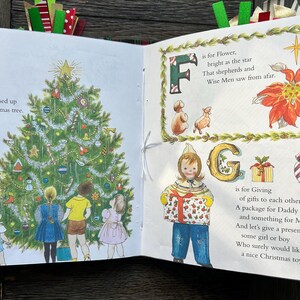 ed up
tmas tree.
F
is for Flower,
bright as the star
That shepherds and
Wise Men saw from afar.
G
is for Giving
of gifts to each other
A package for Daddy
and something for M
And let's give a present
some girl or boy
Who surely would like
a nice Christmas toy